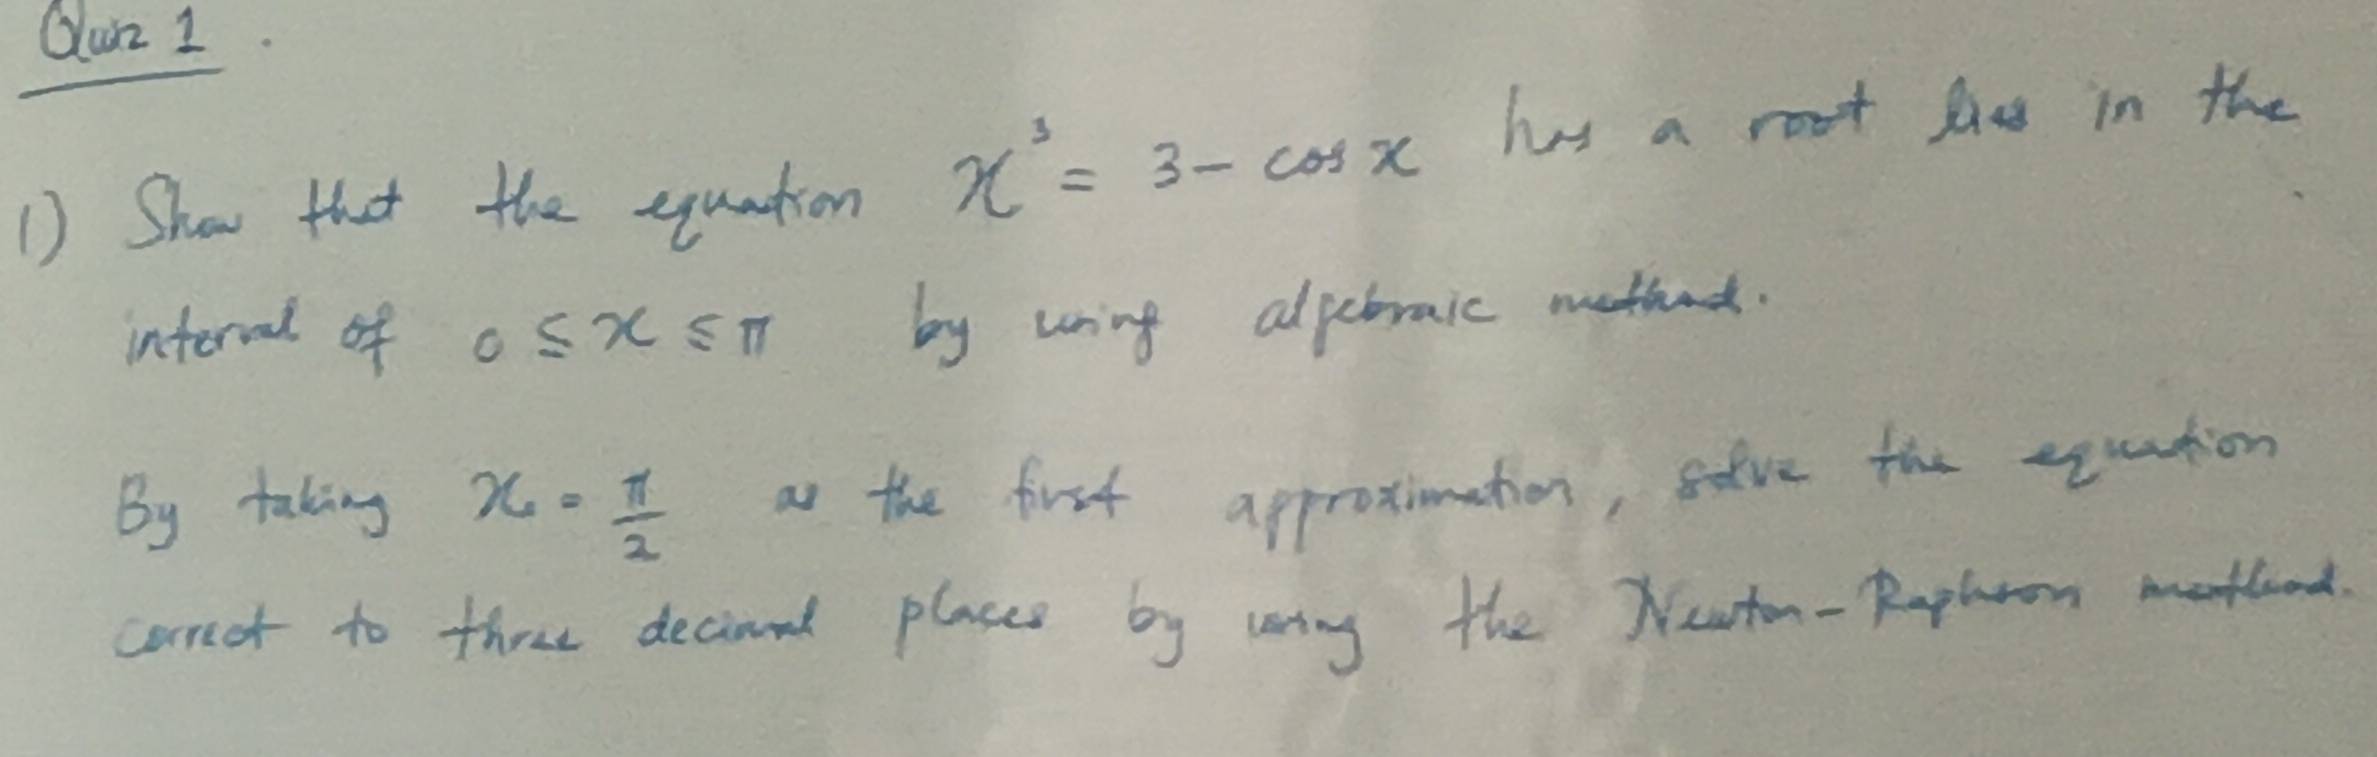 Quiz 1.
1) Show that the equation x³ = 3 - cos x has a root lies in the
interval of 0 ≤ x ≤ π by using algebraic method.
By taking x₀ = π/2 as the first approximation, solve the equation
correct to three decimal places by using the Newton-Raphson method.